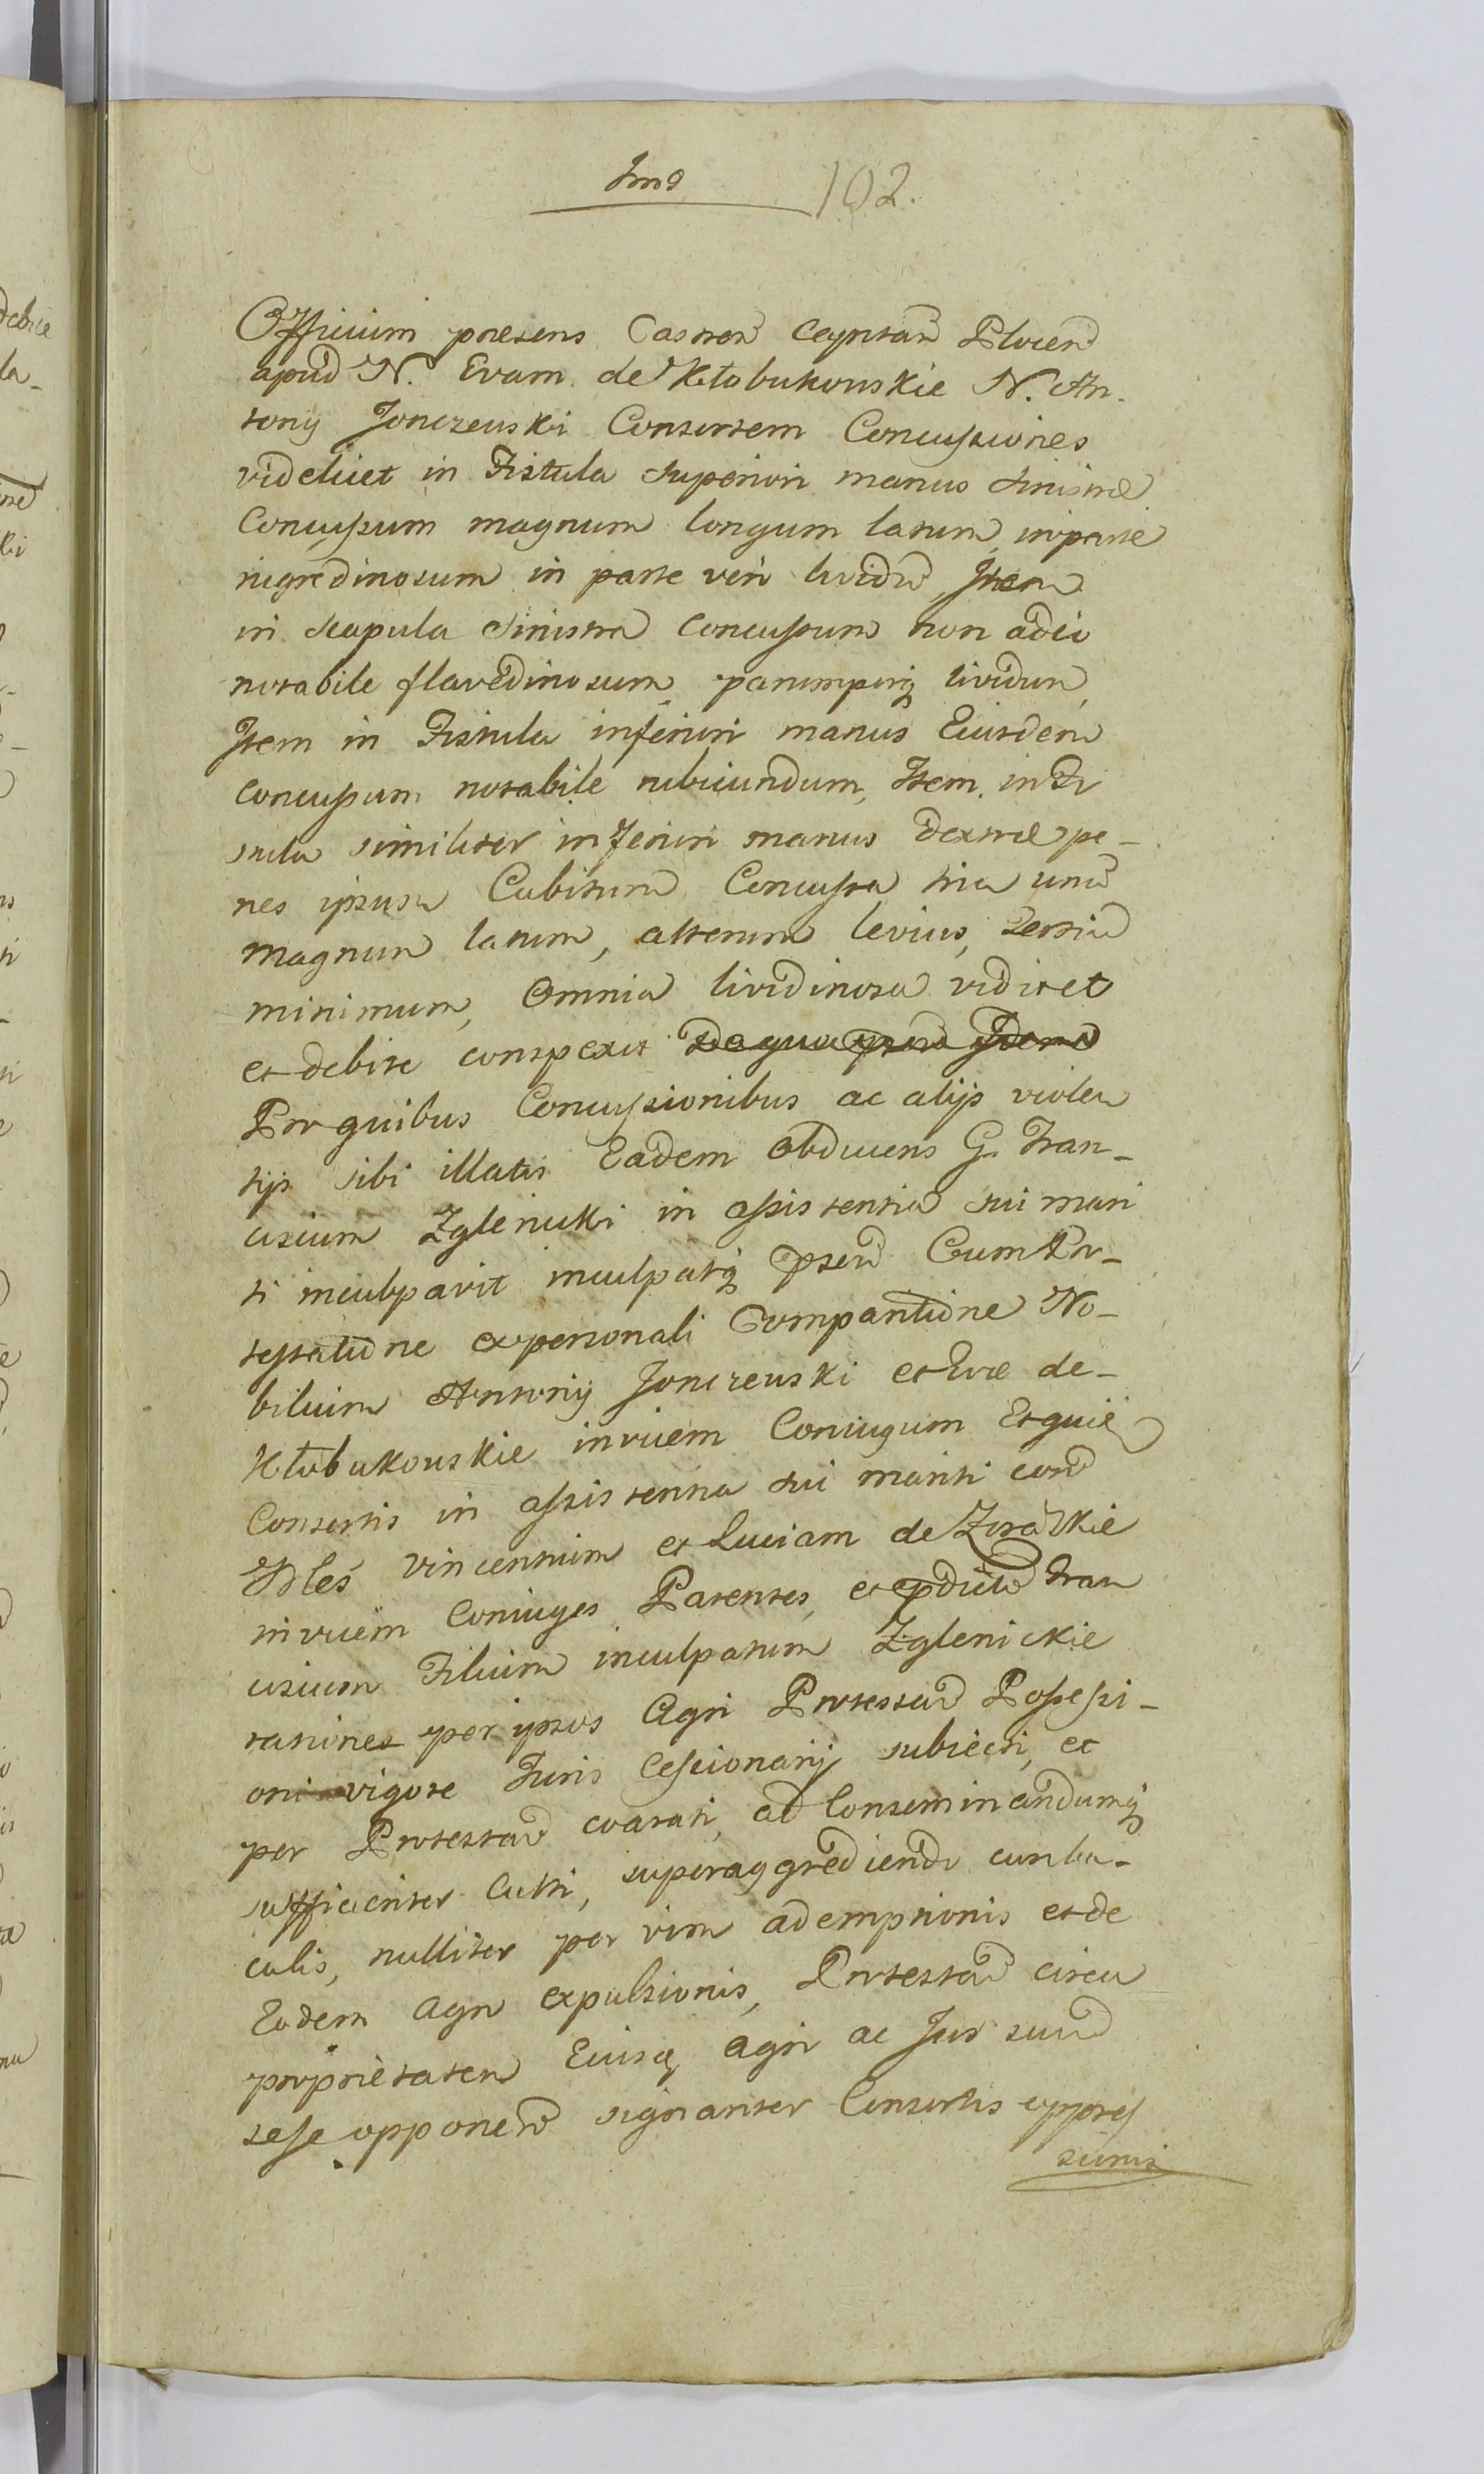 102.
Officium presens Castren Capitan Plocen
apud N. Evam de Kłobukowskie N. An-
tonij Jonczewski Consortem Concussiones
videlicet in Fistula superiori manus sinistræ
Concussum magnum longum latum, in parte
nigredinosum in parte vero lividũ, Item
in scapula sinistra concussum non adeo
notabile flavedinosum parumperq lividum,
Item in Fistula inferiori manus Eiusdem
concussum notabile rubicundum, Item in Fi
stula similiter inferiori manus dextræ pe-
nes ipsum Cubitum Concussa tria unũ
magnum latum, alterum levius, tertiũ
minimum, Omnia lividinosa vidit et
et debite conspexit
Pro quibus Concussionibus ac alijs violen
tijs sibi illatis Eadem obducens G. Fran-
ciscum Zglenicki in assistentia sui mari
ti inculpavit inculpatq psen Cum Pro-
testatione ex personali Comparitione No-
bilium Antonij Jonczewski et Evæ de-
Kłobukowskie invicem Coniugum Etquiē
Consortis in assistentia sui mariti con
Nbles Vincentium et Luciam de
invicem Coniuges Parentes, et pdictũ Fran
ciscum Filium inculpatum Zglenickie
ratione per ipsos Agri Protestan Possessi-
oni vigore Juris Cessionarij subiecti, et
per Protestan coarati, ad Conseminandumq
sufficienter Culti, superaggrediendo cum ba-
culis, nulliter per vim ademptionis et de
Eodem Agro expulsionis, Protestan circa
proprietatem Eiusq agri ac Jus suũ
sese opponen signanter Consortis oppres
sionis